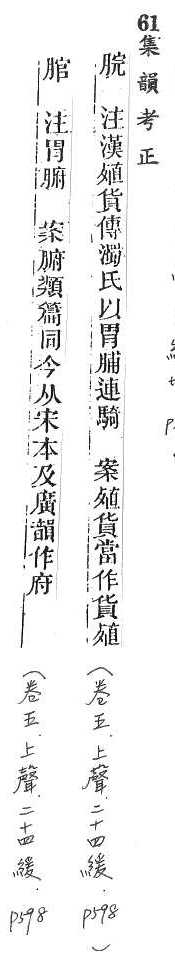 61集韻考正
脘 注漢殖貨傳濁氏以胃脯連騎 案殖貨當作貨殖 (卷五.上聲.二十四緩.p598)
䘾 注胃腑 案腑類篇同今从宋本及廣韻作府 (卷五.上聲.二十四緩.p598